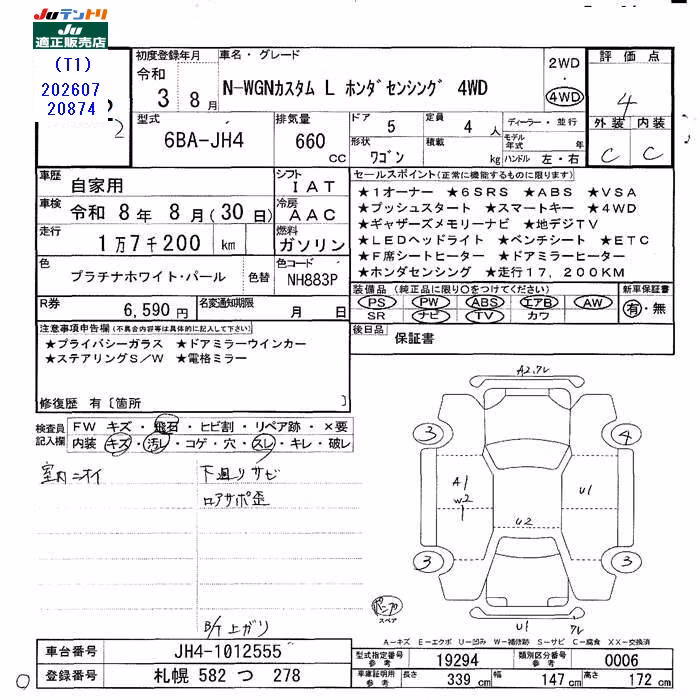 JUテントリ
JU
適正販売店
(T1)
202607
20874
2
初度登録年月
令和
3 8月
車名・グレード
N-WGNカスタム L ホンダセンシング 4WD
2WD
・
4WD
評価点
4
外装 内装
C C
型式
6BA-JH4
排気量
660
cc
ドア
5
定員
4 人
形状
ワゴン
積載
kg
ディーラー・並行
モデル年式 年
ハンドル 左・右
車歴
自家用
シフト
IAT
車検
令和 8年 8月(30日)
冷房
AAC
走行
1万7千200 km
燃料
ガソリン
色
プラチナホワイト・パール
色替
色コード
NH883P
R券
6,590円
名変通知期限
月 日
セールスポイント(正常に機能するものに限ります)
★1オーナー ★6SRS ★ABS ★VSA
★プッシュスタート ★スマートキー ★4WD
★ギャザーズメモリーナビ ★地デジTV
★LEDヘッドライト ★ベンチシート ★ETC
★F席シートヒーター ★ドアミラーヒーター
★ホンダセンシング ★走行17,200KM
装備品(純正品に限り○をつけてください)
新車保証書
PS PW ABS エアB AW
SR ナビ TV カワ
有・無
後日品
保証書
注意事項申告欄(不具合内容等は具体的に記入して下さい)
★プライバシーガラス ★ドアミラーウインカー
★ステアリングS/W ★電格ミラー
修復歴 有〔箇所 〕
検査員記入欄
FW キズ・飛石・ヒビ割・リペア跡・×要
内装 キズ・汚レ・コゲ・穴・スレ・キレ・破レ
室内ニオイ
下廻りサビ
ロアサポ歪
B/T上ガリ
A2.アレ
3 4
A1
W2
U1
U2
3 3
パンク
スペア
U1 アレ
A-キズ E-エクボ U-凹み W-補修跡 S-サビ C-腐食 XX-交換済
車台番号
JH4-1012555
登録番号
札幌 582 つ 278
型式指定番号
参考
19294
類別区分番号
参考
0006
車庫証明用
参考
長さ
339 cm
幅
147 cm
高さ
172 cm